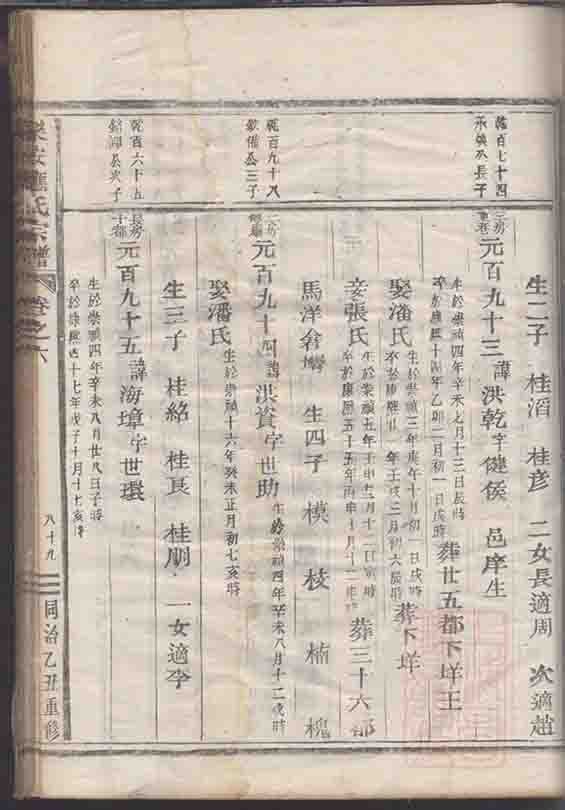 生二子 桂滔 桂彥 二女長適周 次適趙
乾百七十四
長子
三房
元百九十三 諱洪乾字健侯 邑庠生
生於崇禎四年辛未七月十三日辰時
卒於康熙十四年乙卯二月初一日戌時
葬廿五都下垟王
娶潘氏
生於崇禎三年庚午十月初一日戌時
卒於康熙廿一年壬戌三月初六辰時
葬下垟
妾張氏
生於崇禎五年壬申二月十二日寅時
卒於康熙五十五年丙申十月十二
葬三十六都
馬洋倉灣 生四子 模 枝 楠 槐
乾百九十八
公三子
二房
元百九十四諱洪資字世助
生於崇禎四年辛未八月十二戌時
娶潘氏
生於崇禎十六年癸未正月初七亥時
生三子 桂紹 桂良 桂朋 一女適李
乾百六十五
公次子
長房
十都
元百九十五 諱海璋字世環
生於崇禎四年辛未八月廿八日子時
卒於康熙四十七年戊子十月十七亥時
樂安 氏宗譜
卷之六
八十九
同治乙丑重修